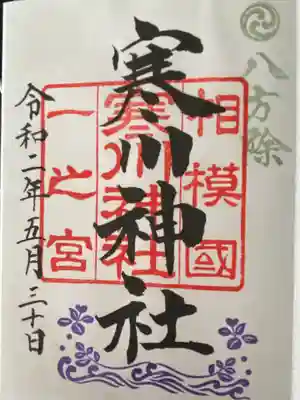 八方除
相模國
寒川神社
寒川神社
一之宮
令和二年五月三十日